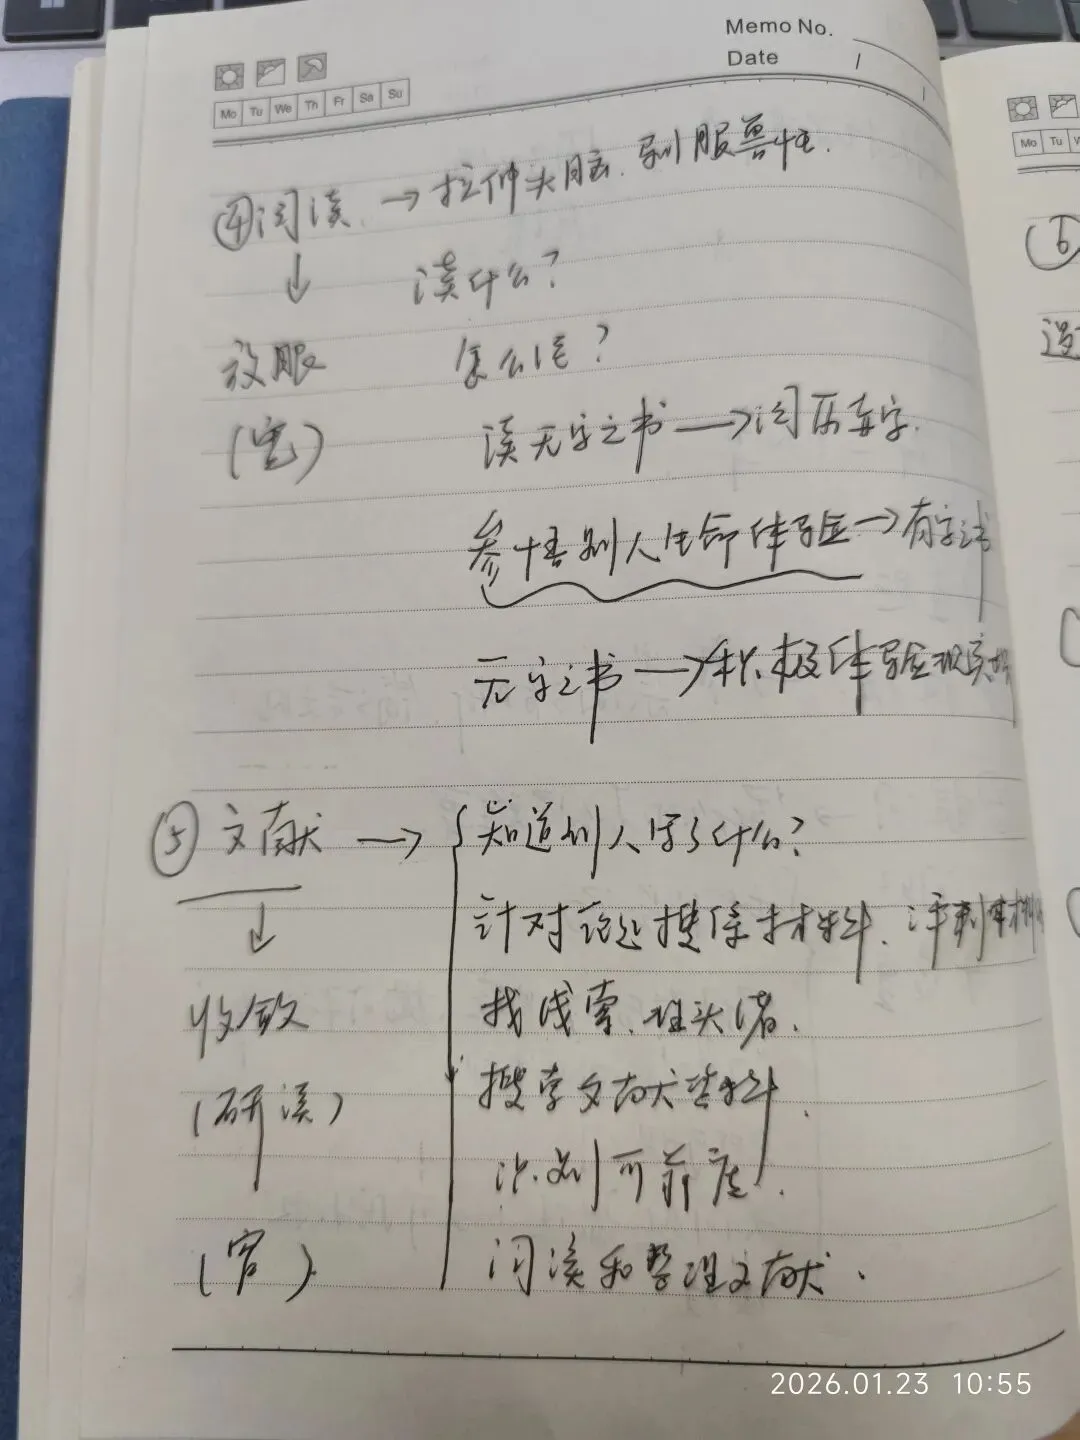 Memo No.
Date /
Mo Tu We Th Fr Sa Su
Mo Tu
④阅读 → 拉伸大脑、驯服兽性.
↓ 读什么?
放眼 怎么读?
(宽)
读无字之书 →
参悟别人生命体验 → 有字之书
无字之书 → 积极体验现实
⑥
⑤ 文献 → 知道别人写了什么?
↓ 针对论述搜集材料、评判材料
收敛 找线索、理头绪.
(研读) 搜索文献资料.
识别可靠度.
(窄) 阅读和整理文献.
2026.01.23 10:55